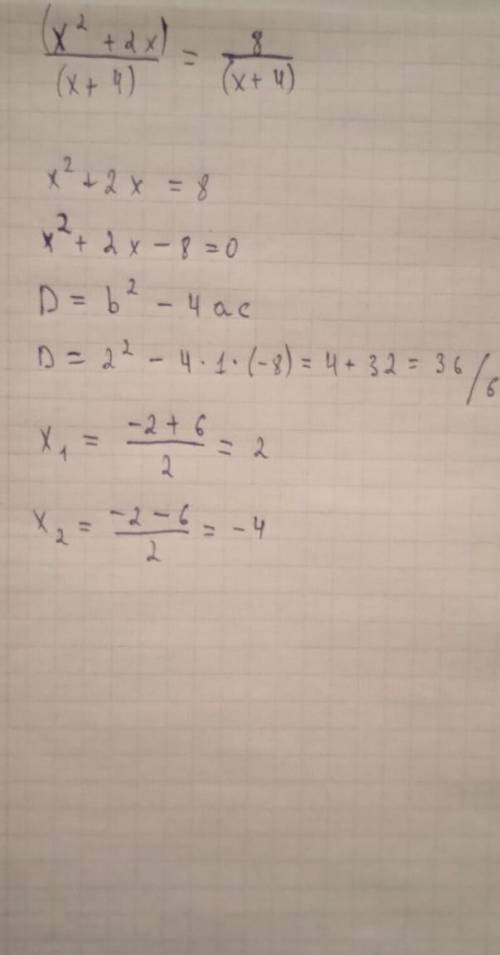 (x² + 2x) / (x + 4) = 8 / (x + 4)
x² + 2x = 8
x² + 2x - 8 = 0
D = b² - 4ac
D = 2² - 4 · 1 · (-8) = 4 + 32 = 36 / 6
x₁ = (-2 + 6) / 2 = 2
x₂ = (-2 - 6) / 2 = -4